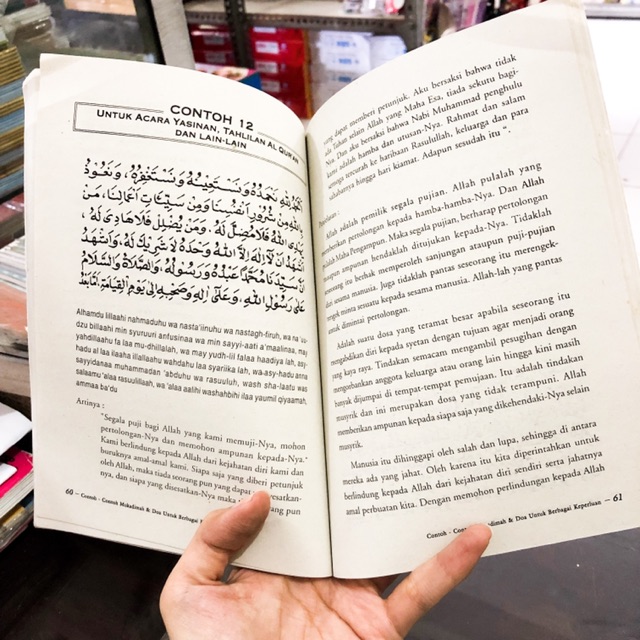 CONTOH 12
UNTUK ACARA YASINAN, TAHLILAN AL QUR'AN
DAN LAIN-LAIN
الْحَمْدُ لِلّٰهِ نَحْمَدُهُ وَنَسْتَعِيْنُهُ وَنَسْتَغْفِرُهُ، وَنَعُوْذُ
بِاللّٰهِ مِنْ شُرُوْرِ اَنْفُسِنَا وَمِنْ سَيِّئَاتِ اَعْمَالِنَا، مَنْ
يَهْدِى اللّٰهُ فَلَا مُضِلَّ لَهُ، وَمَنْ يُضْلِلْ فَلَا هَادِيَ لَهُ،
اَشْهَدُ اَنْ لَا اِلٰهَ اِلَّا اللّٰهُ وَحْدَهُ لَا شَرِيْكَ لَهُ، وَاَشْهَدُ
اَنَّ سَيِّدَنَا مُحَمَّدًا عَبْدُهُ وَرَسُوْلُهُ، وَالصَّلَاةُ وَالسَّلَامُ
عَلٰى رَسُوْلِ اللّٰهِ، وَعَلٰى اٰلِهِ وَصَحْبِهِ اِلٰى يَوْمِ الْقِيَامَةِ، اَمَّا بَعْدُ
Alhamdu lillaahi nahmaduhu wa nasta'iinuhu wa nastagh-firuh, wa na'uu-
dzu billaahi min syuruuri anfusinaa wa min sayyi-aati a'maalinaa, may
yahdillaahu fa laa mu-dhillalah, wa may yudh-lil falaa haadiya lah, asy-
hadu al laa ilaaha illallaahu wahdahu laa syariika lah, wa-asy-hadu anna
sayyidanaa muhammadan 'abduhu wa rasuuluh, wash sha-laatu was
salaamu 'alaa rasuulillaah, wa 'alaa aalihi washahbihi ilaa yaumil qiyaamah,
ammaa ba'du
Artinya :
"Segala puji bagi Allah yang kami memuji-Nya, mohon
pertolongan-Nya dan memohon ampunan kepada-Nya."
Kami berlindung kepada Allah dari kejahatan diri kami dan
buruknya amal-amal kami. Siapa saja yang diberi petunjuk
oleh Allah, maka tiada seorang pun yang dapat
nya, dan siapa yang disesarkan-Nya maka pun
60 – Contoh - Contoh Mukadimah & Doa Untuk Berbagai
yang dapat memberi petunjuk. Aku bersaksi bahwa tidak
ada Tuhan selain Allah yang Maha Esa, tiada sekutu bagi-
Nya. Dan aku bersaksi bahwa Nabi Muhammad penghulu
kami adalah hamba dan utusan-Nya. Rahmat dan salam
semoga tercurah ke haribaan Rasulullah, keluarga dan para
sahabatnya hingga hari kiamat. Adapun sesudah itu ".
Penjelasan :
Allah adalah pemilik segala pujian. Allah pulalah yang
memberikan pertolongan kepada hamba-hamba-Nya. Dan Allah
adalah Maha Pengampun. Maka segala pujian, berharap pertolongan
maupun ampunan hendaklah ditujukan kepada-Nya. Tidaklah
seorang itu berhak memperoleh sanjungan ataupun puji-pujian
dari sesama manusia. Juga tidaklah pantas seorang itu merengek-
rengek minta sesuatu kepada sesama manusia. Allah-lah yang pantas
untuk dimintai pertolongan.
Adalah suatu dosa yang teramat besar apabila seseorang itu
mengabdikan diri kepada syetan dengan tujuan agar menjadi orang
yang kaya raya. Tindakan semacam mengambil pesugihan dengan
mengorbankan anggota keluarga atau orang lain hingga kini masih
banyak dijumpai di tempat-tempat pemujaan. Itu adalah tindakan
musyrik dan ini merupakan dosa yang tidak terampuni. Allah
memberikan ampunan kepada siapa saja yang dikehendaki-Nya selain
musyrik.
Manusia itu dihinggapi oleh salah dan lupa, sehingga di antara
mereka ada yang jahat. Oleh karena itu kita diperintahkan untuk
berlindung kepada Allah dari kejahatan diri sendiri serta jahatnya
amal perbuatan kita. Dengan memohon perlindungan kepada Allah
Contoh - & Doa Untuk Berbagai Keperluan – 61